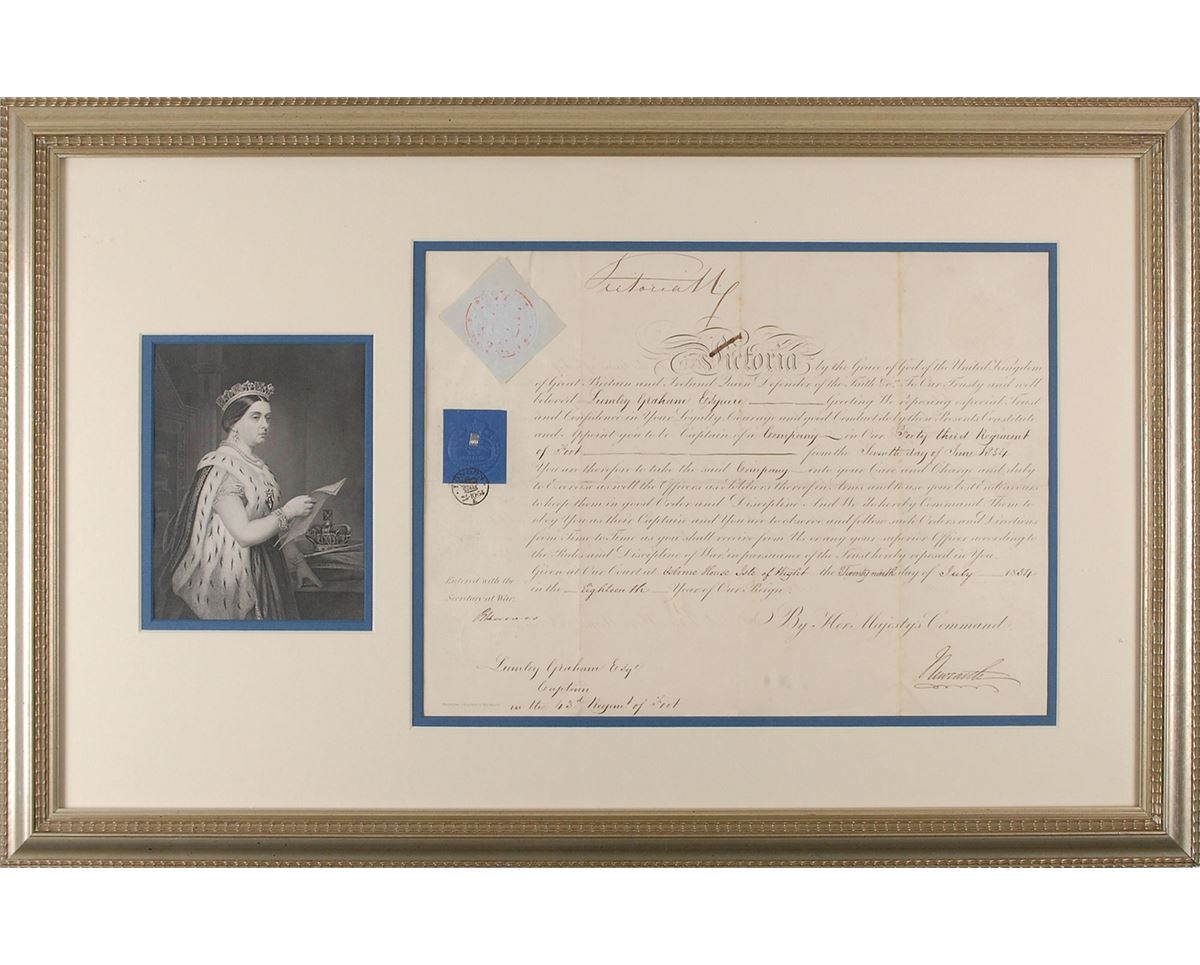 Victoria R
Victoria by the Grace of God of the United Kingdom
of Great Britain and Ireland Queen Defender of the Faith &c. To Our Trusty and well
beloved Lumley Graham Esquire Greeting We reposing especial Trust
and Confidence in Your Loyalty Courage and good Conduct do by these Presents Constitute
and Appoint you to be Captain of a Company in Our Forty third Regiment
of Foot from the day of June 1854
You are therefore to take the said Company into your Care and Charge and duly
to Exercise as well the Officers as Soldiers thereof in Arms and to use your best Endeavours
to keep them in good Order and Discipline And We do hereby Command Them to
obey You as their Captain and You are to observe and follow such Orders and Directions
from Time to Time as you shall receive from Us or any your superior Officer according to
the Rules and Discipline of War in pursuance of the Trust hereby reposed in You
Given at Our Court at Osborne House Isle of Wight the Twenty ninth day of July 1854
in the Eighteenth Year of Our Reign
Entered with the
Secretary at War.
By Her Majesty's Command
Newcastle
Lumley Graham Esqr
Captain
in the 43d Regimt of Foot